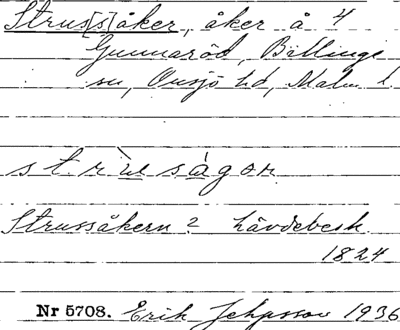 Strus[s]åker, åker å 4
Gunnaröd, Bällinge
sn, Onsjö hd, Malm. l.
strùsågọn
Strussåkern 2 hävdebesk.
1824
Nr 5708. Erik Jeppsson 1936